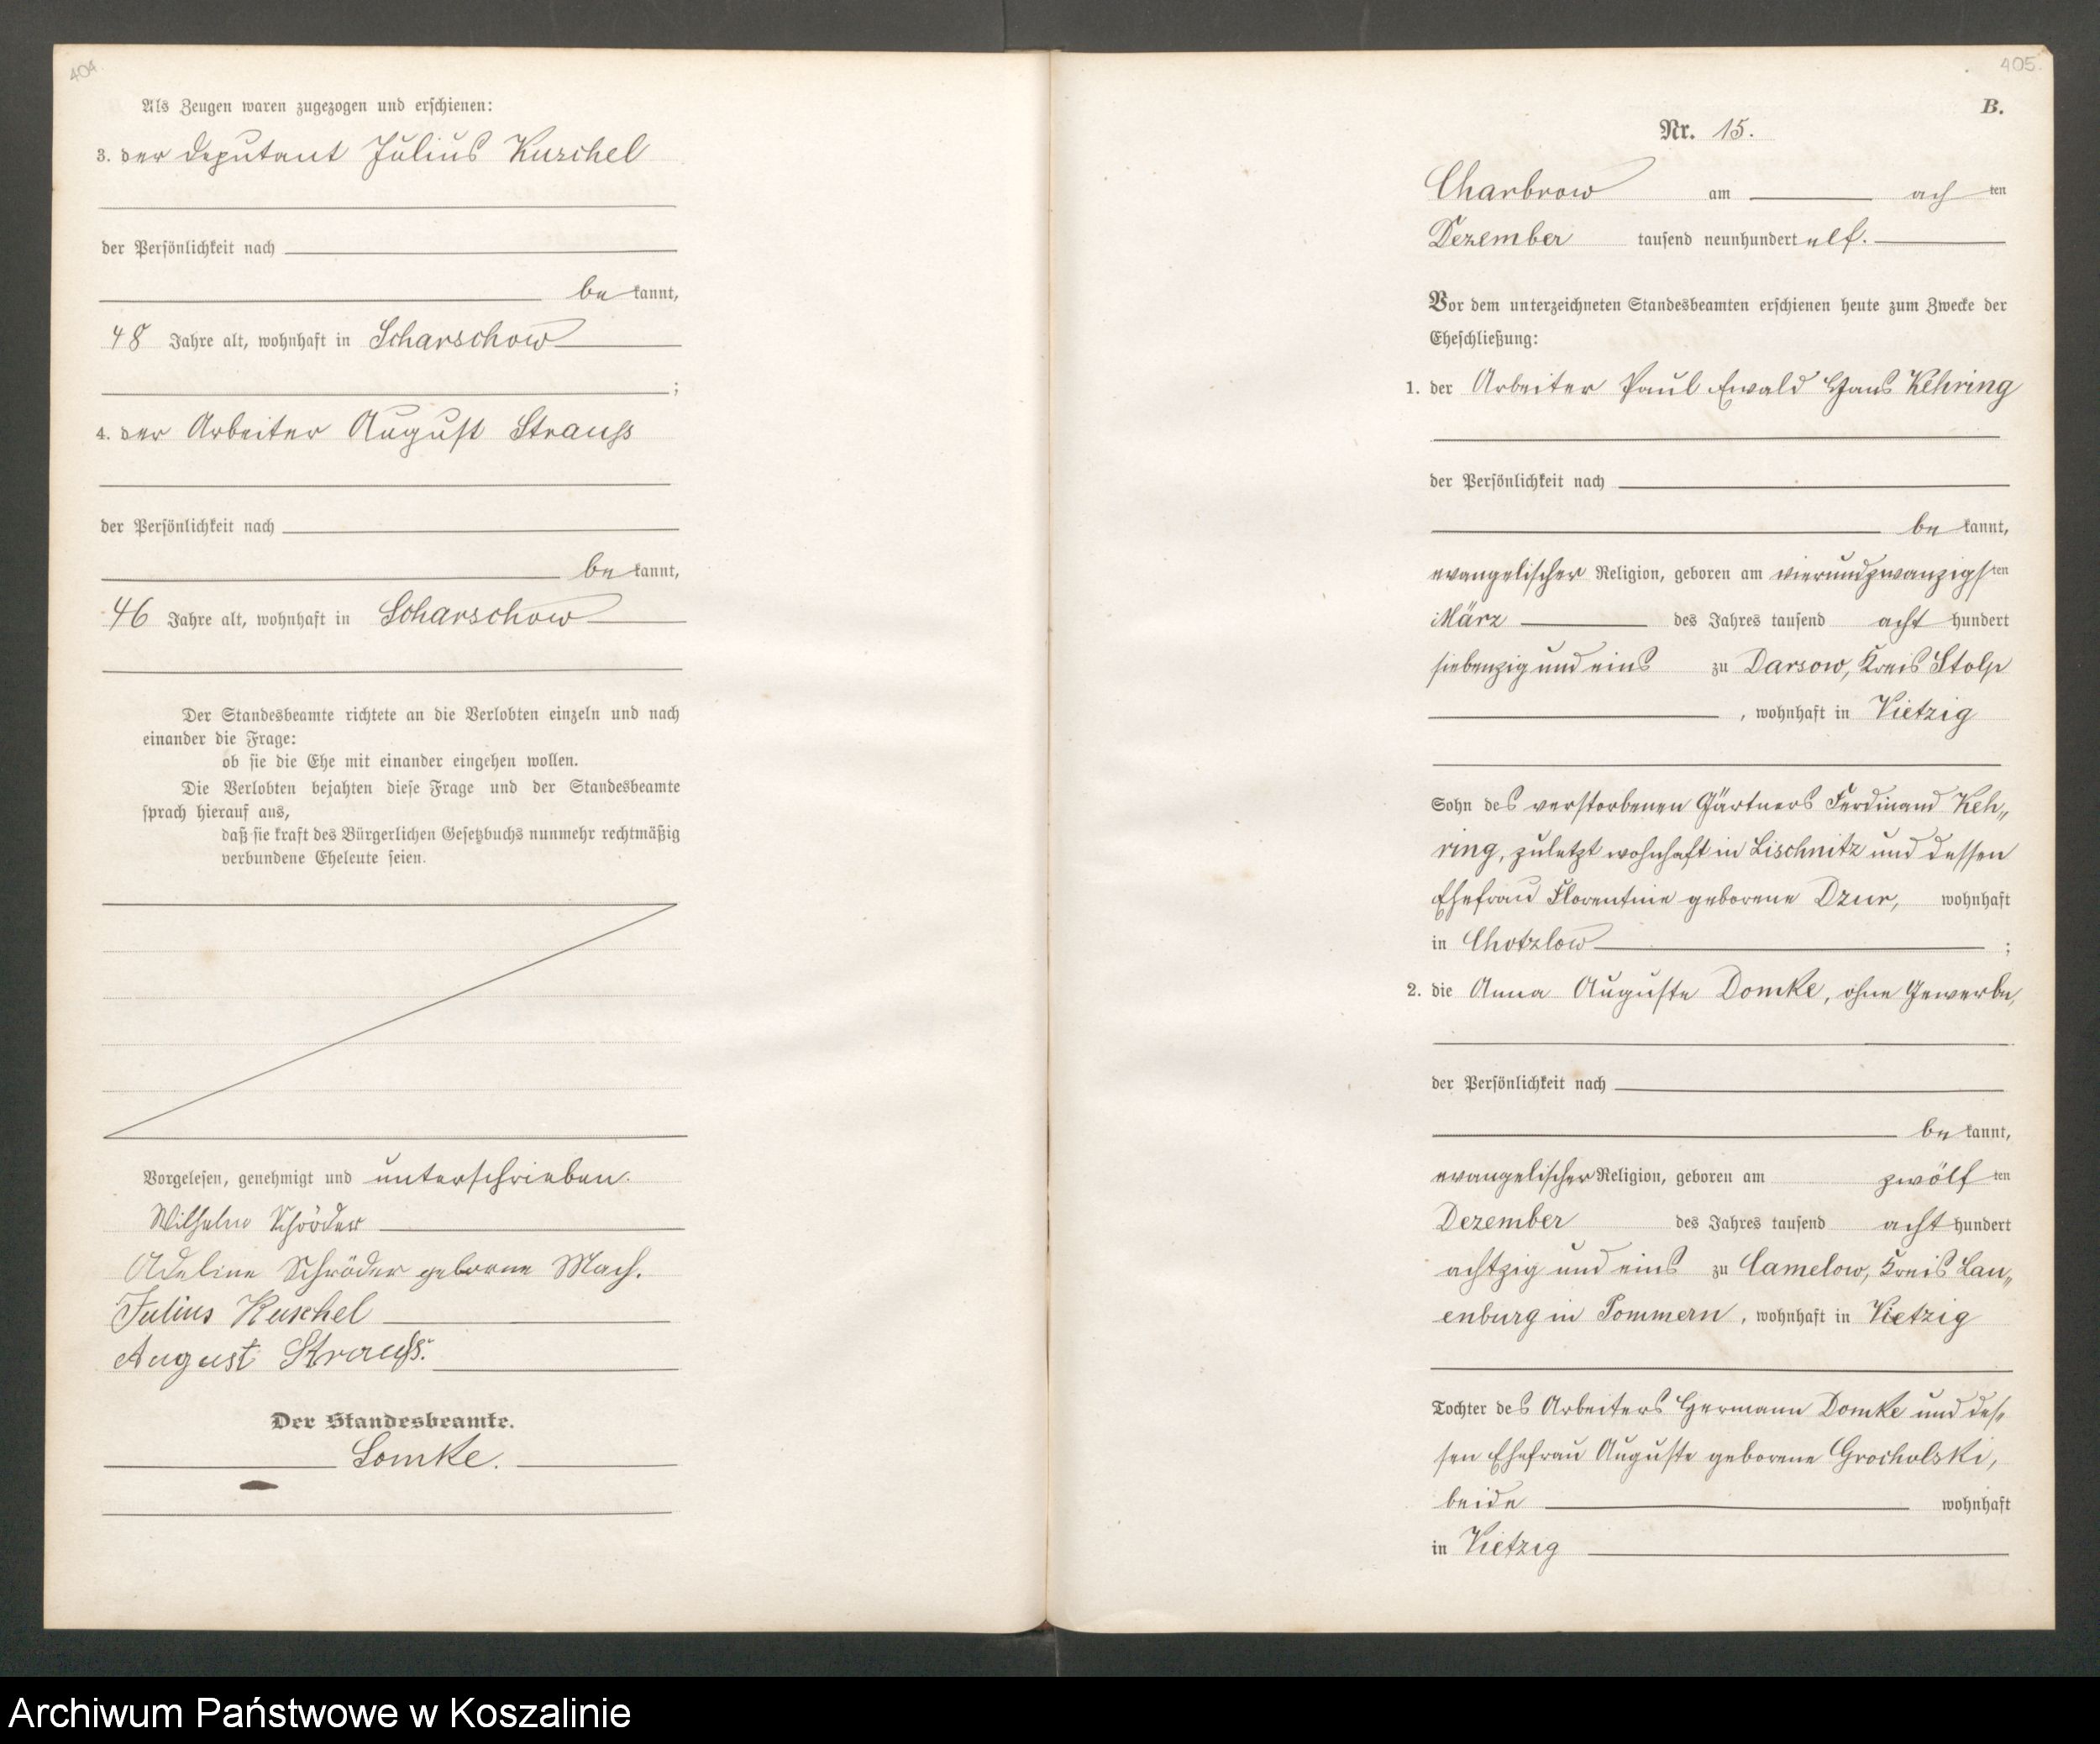 404.
Als Zeugen waren zugezogen und erschienen:
3. der Deputant Julius Kuschel
der Persönlichkeit nach
be kannt,
48 Jahre alt, wohnhaft in Scharschow
;
4. der Arbeiter August Strauss
der Persönlichkeit nach
be kannt,
46 Jahre alt, wohnhaft in Scharschow
Der Standesbeamte richtete an die Verlobten einzeln und nach
einander die Frage:
ob sie die Ehe mit einander eingehen wollen.
Die Verlobten bejahten diese Frage und der Standesbeamte
sprach hierauf aus,
daß sie kraft des Bürgerlichen Gesetzbuchs nunmehr rechtmäßig
verbundene Eheleute seien.
Vorgelesen, genehmigt und unterschrieben.
Wilhelm Schröder
Adeline Schröder geborne Mach.
Julius Kuschel
August Strauß.
Der Standesbeamte.
Lomke.
405.
B.
Nr. 15.
Charbrow am ach ten
Dezember tausend neunhundert elf.
Vor dem unterzeichneten Standesbeamten erschienen heute zum Zwecke der
Eheschließung:
1. der Arbeiter Paul Ewald Hans Kehring
der Persönlichkeit nach
be kannt,
evangelischer Religion, geboren am vierundzwanzigs ten
März des Jahres tausend acht hundert
siebenzig und eins zu Darsow, Kreis Stolp
, wohnhaft in Vietzig
Sohn des verstorbenen Gärtners Ferdinand Keh„
ring, zuletzt wohnhaft in Lischnitz und dessen
Ehefrau Florentine geborene Dzur, wohnhaft
in Chotzlow ;
2. die Anna Auguste Domke, ohne Gewerbe,
der Persönlichkeit nach
be kannt,
evangelischer Religion, geboren am zwölf ten
Dezember des Jahres tausend acht hundert
achtzig und eins zu Camelow, Kreis Lau„
enburg in Pommern, wohnhaft in Vietzig
Tochter des Arbeiters Hermann Domke und des„
sen Ehefrau Auguste geborene Grocholski,
beide wohnhaft
in Vietzig
Archiwum Państwowe w Koszalinie